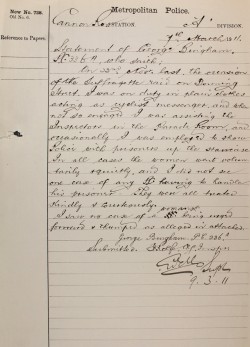 Now No. 728.
Old No. 6.
Metropolitan Police.
Cannon Row STATION. "A" DIVISION.
Reference to Papers.
9th March 1911.
Statement of George Bingham,
P.C. 326 A, who saith:
On 22nd Novr. last, the occasion
of the Suffragettes raid on Downing
Street, I was on duty in plain clothes
acting as cyclist messenger, and when
not so engaged I was assisting the
Inspectors in the Parade Room, and
occasionally I was employed to show
Police with prisoners up the staircase.
In all cases the women went volun
tarily & quietly, and I did not see
one case of any PC having to handle
his prisoner. They were all treated
kindly & courteously.
I saw no case of a woman being
& thumped as alleged in attached.
George Bingham P.C. 326A
Submitted.
Supt.
9.3.11